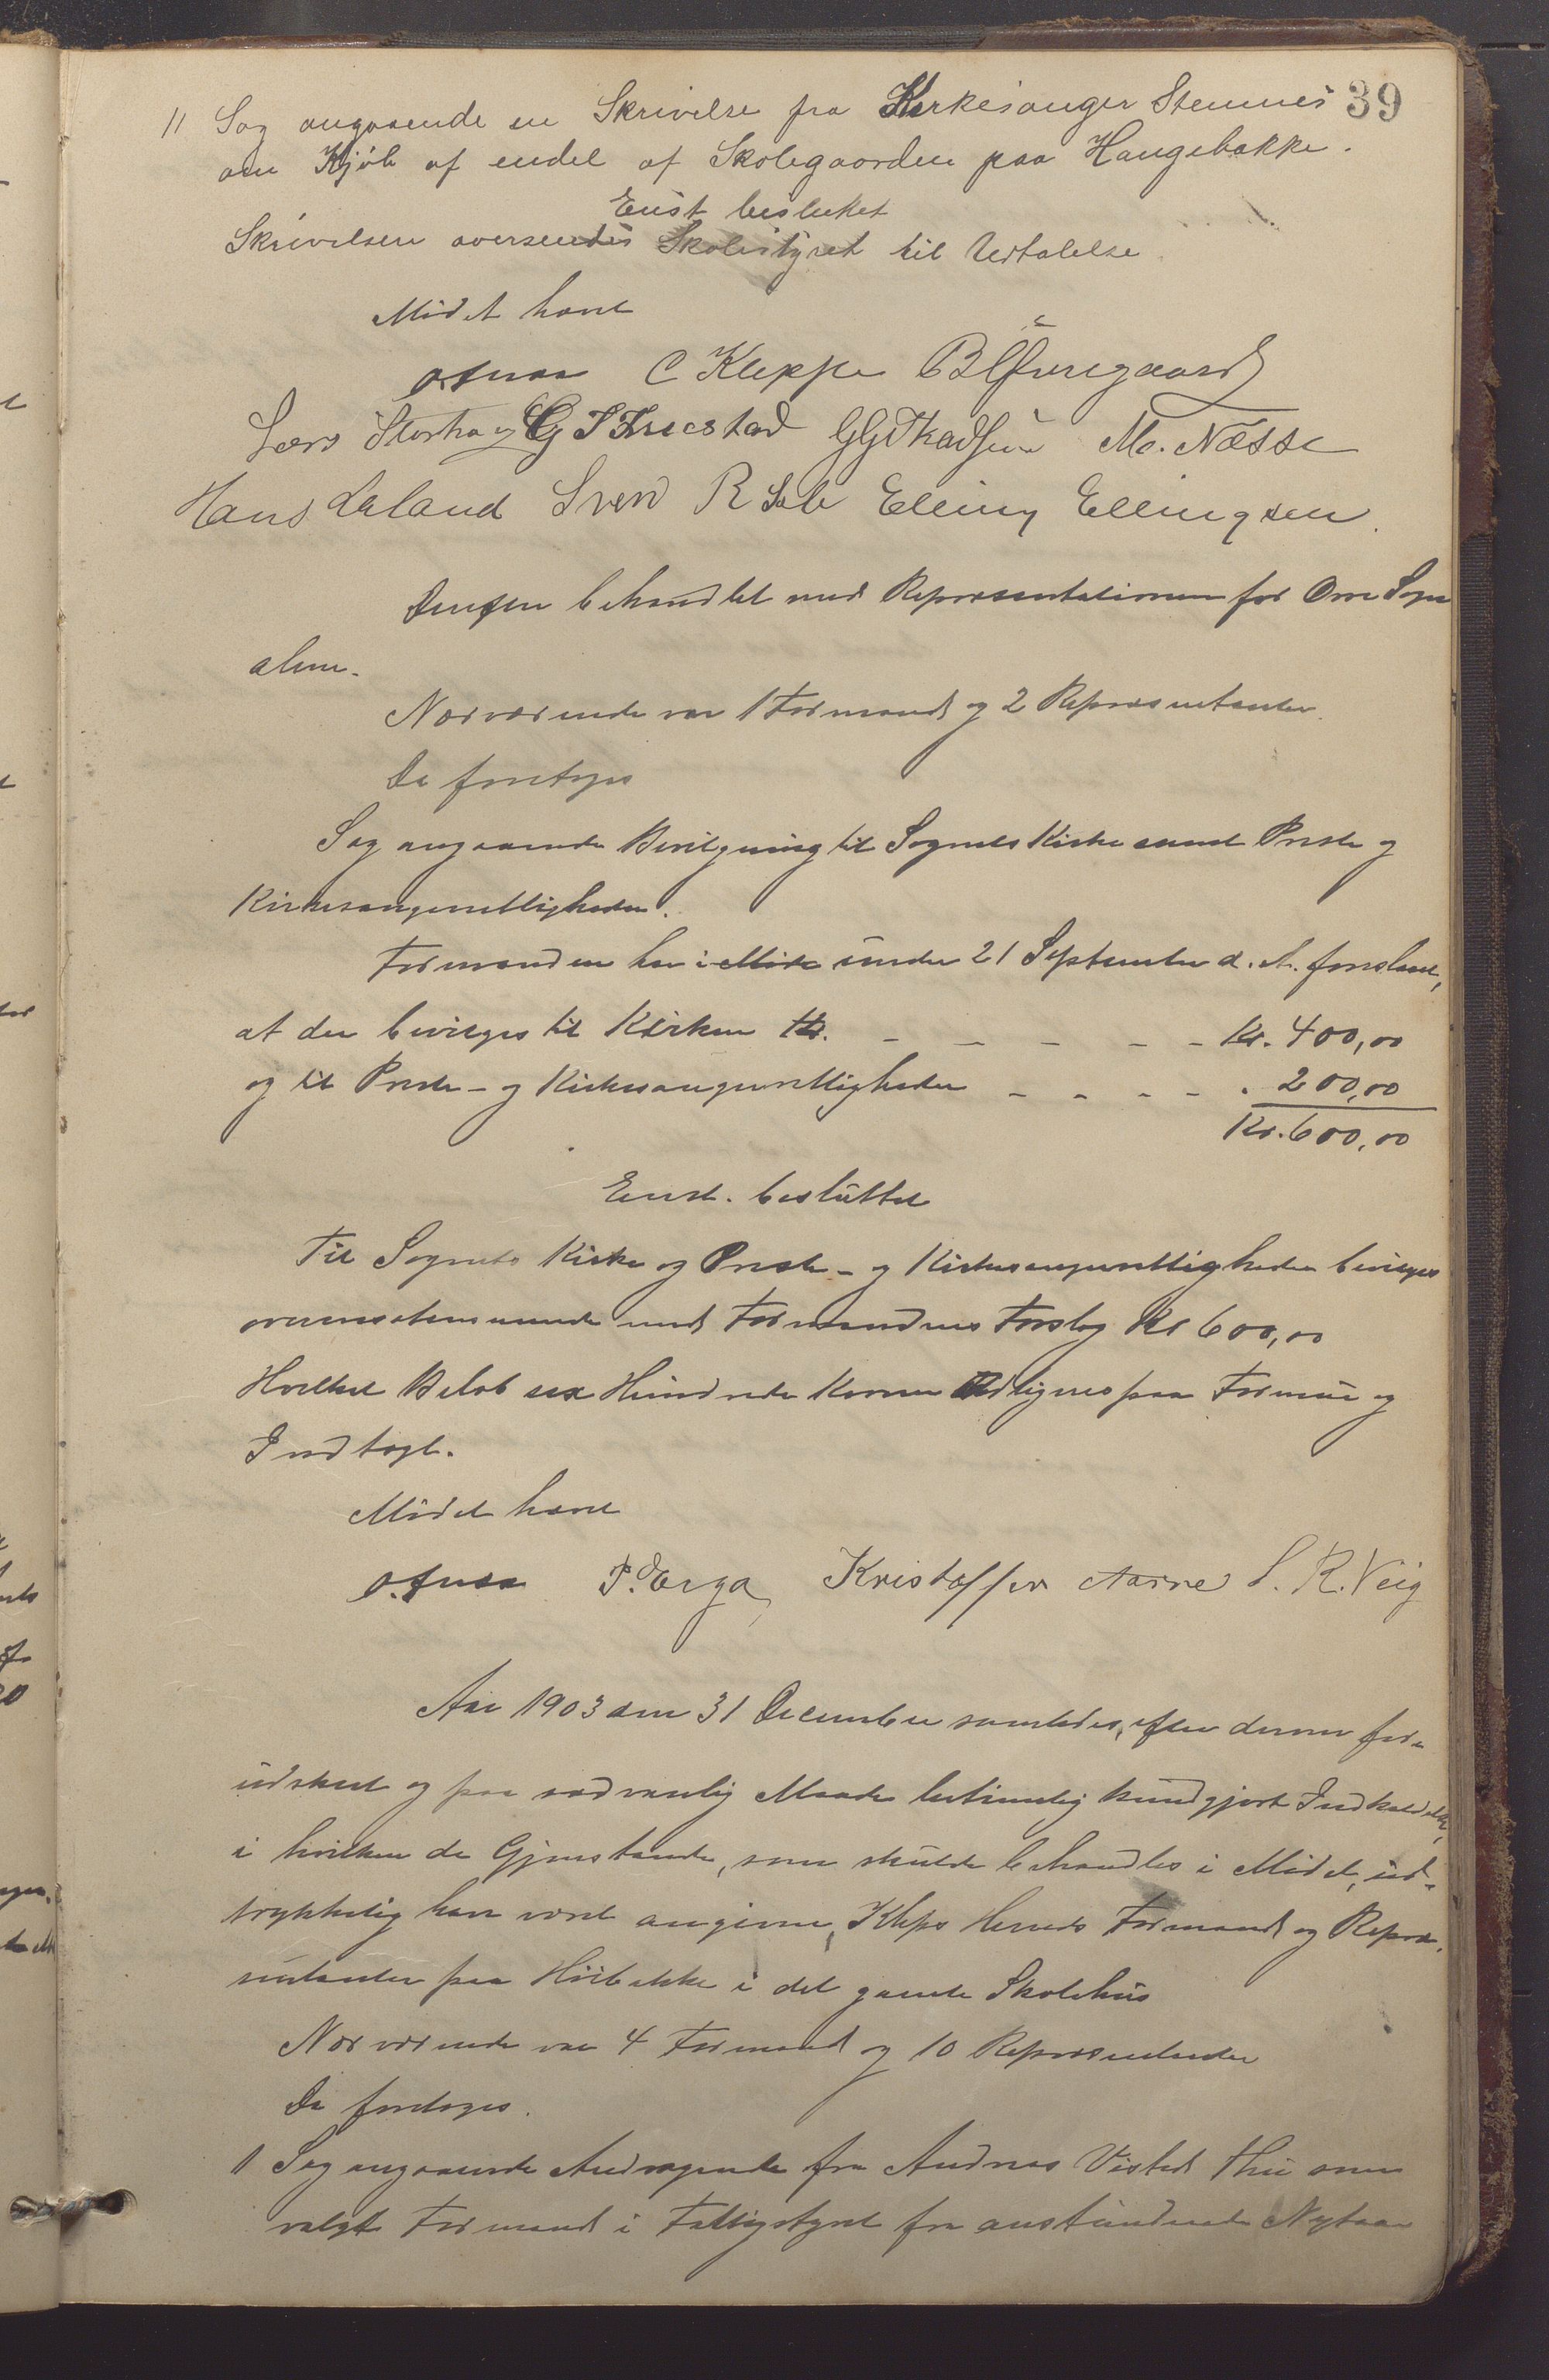 39
11 Sag angaaende en Skrivelse fra Kirkesanger Stemnes
om Kjøb af endel af Skolegaarden paa Haugebakke.
Enst besluttet
Skrivelsen oversendes Skolestyret til Udtalelse
Mødet hævet
C Kleppe
Lars Storhaug M. Næsse
Hans Laland Sven R Elling Ellingsen.
behandlet med Repræsentationen for Orre Sogn
alene.
Nærværende var 1 Formand og 2 Repræsentanter.
Da foretoges
Sag angaaende Bevilgning til Sognets Kirke samt Preste og
Kirkesangerrettigheder.
Formanden har i Møde under 21 September d. A. foreslaaet,
at der beviges til Kirken Kr. - - - - - Kr. 400,00
og til Preste- og Kirkesangerrettigheder - - - - . 200,00
Kr. 600,00
Enst. besluttet
Til Sognets Kirke og Preste- og Kirkesangerrettigheder beviges
overensstemmende med Formandens Forslag Kr 600,00
Hvilket Beløb sex Hundrede Kroner Udlignes paa Formue og
Indtægt.
Mødet hævet
P. Erga Kristoffer Aarre S. R. Veig
Aar 1903 den 31 December samledes, efter dennes for-
udskeet og paa sædvanlig Maade betimelig kundgjort Indkaldelse,
i hvilken de Gjenstande, som skulde behandles i Mødet, ud-
trykkelig har været angivne, Kleps Herreds Formænd og Repræ-
sentanter paa Høibakke i det gamle Skolehus
Nærværende var 4 Formænd og 10 Repræsentanter
Da foretoges.
1 Sag angaaende Andragende fra Andreas Vistad Thu som
valgt Formand i Fattigstyret fra anstundende Nytaar